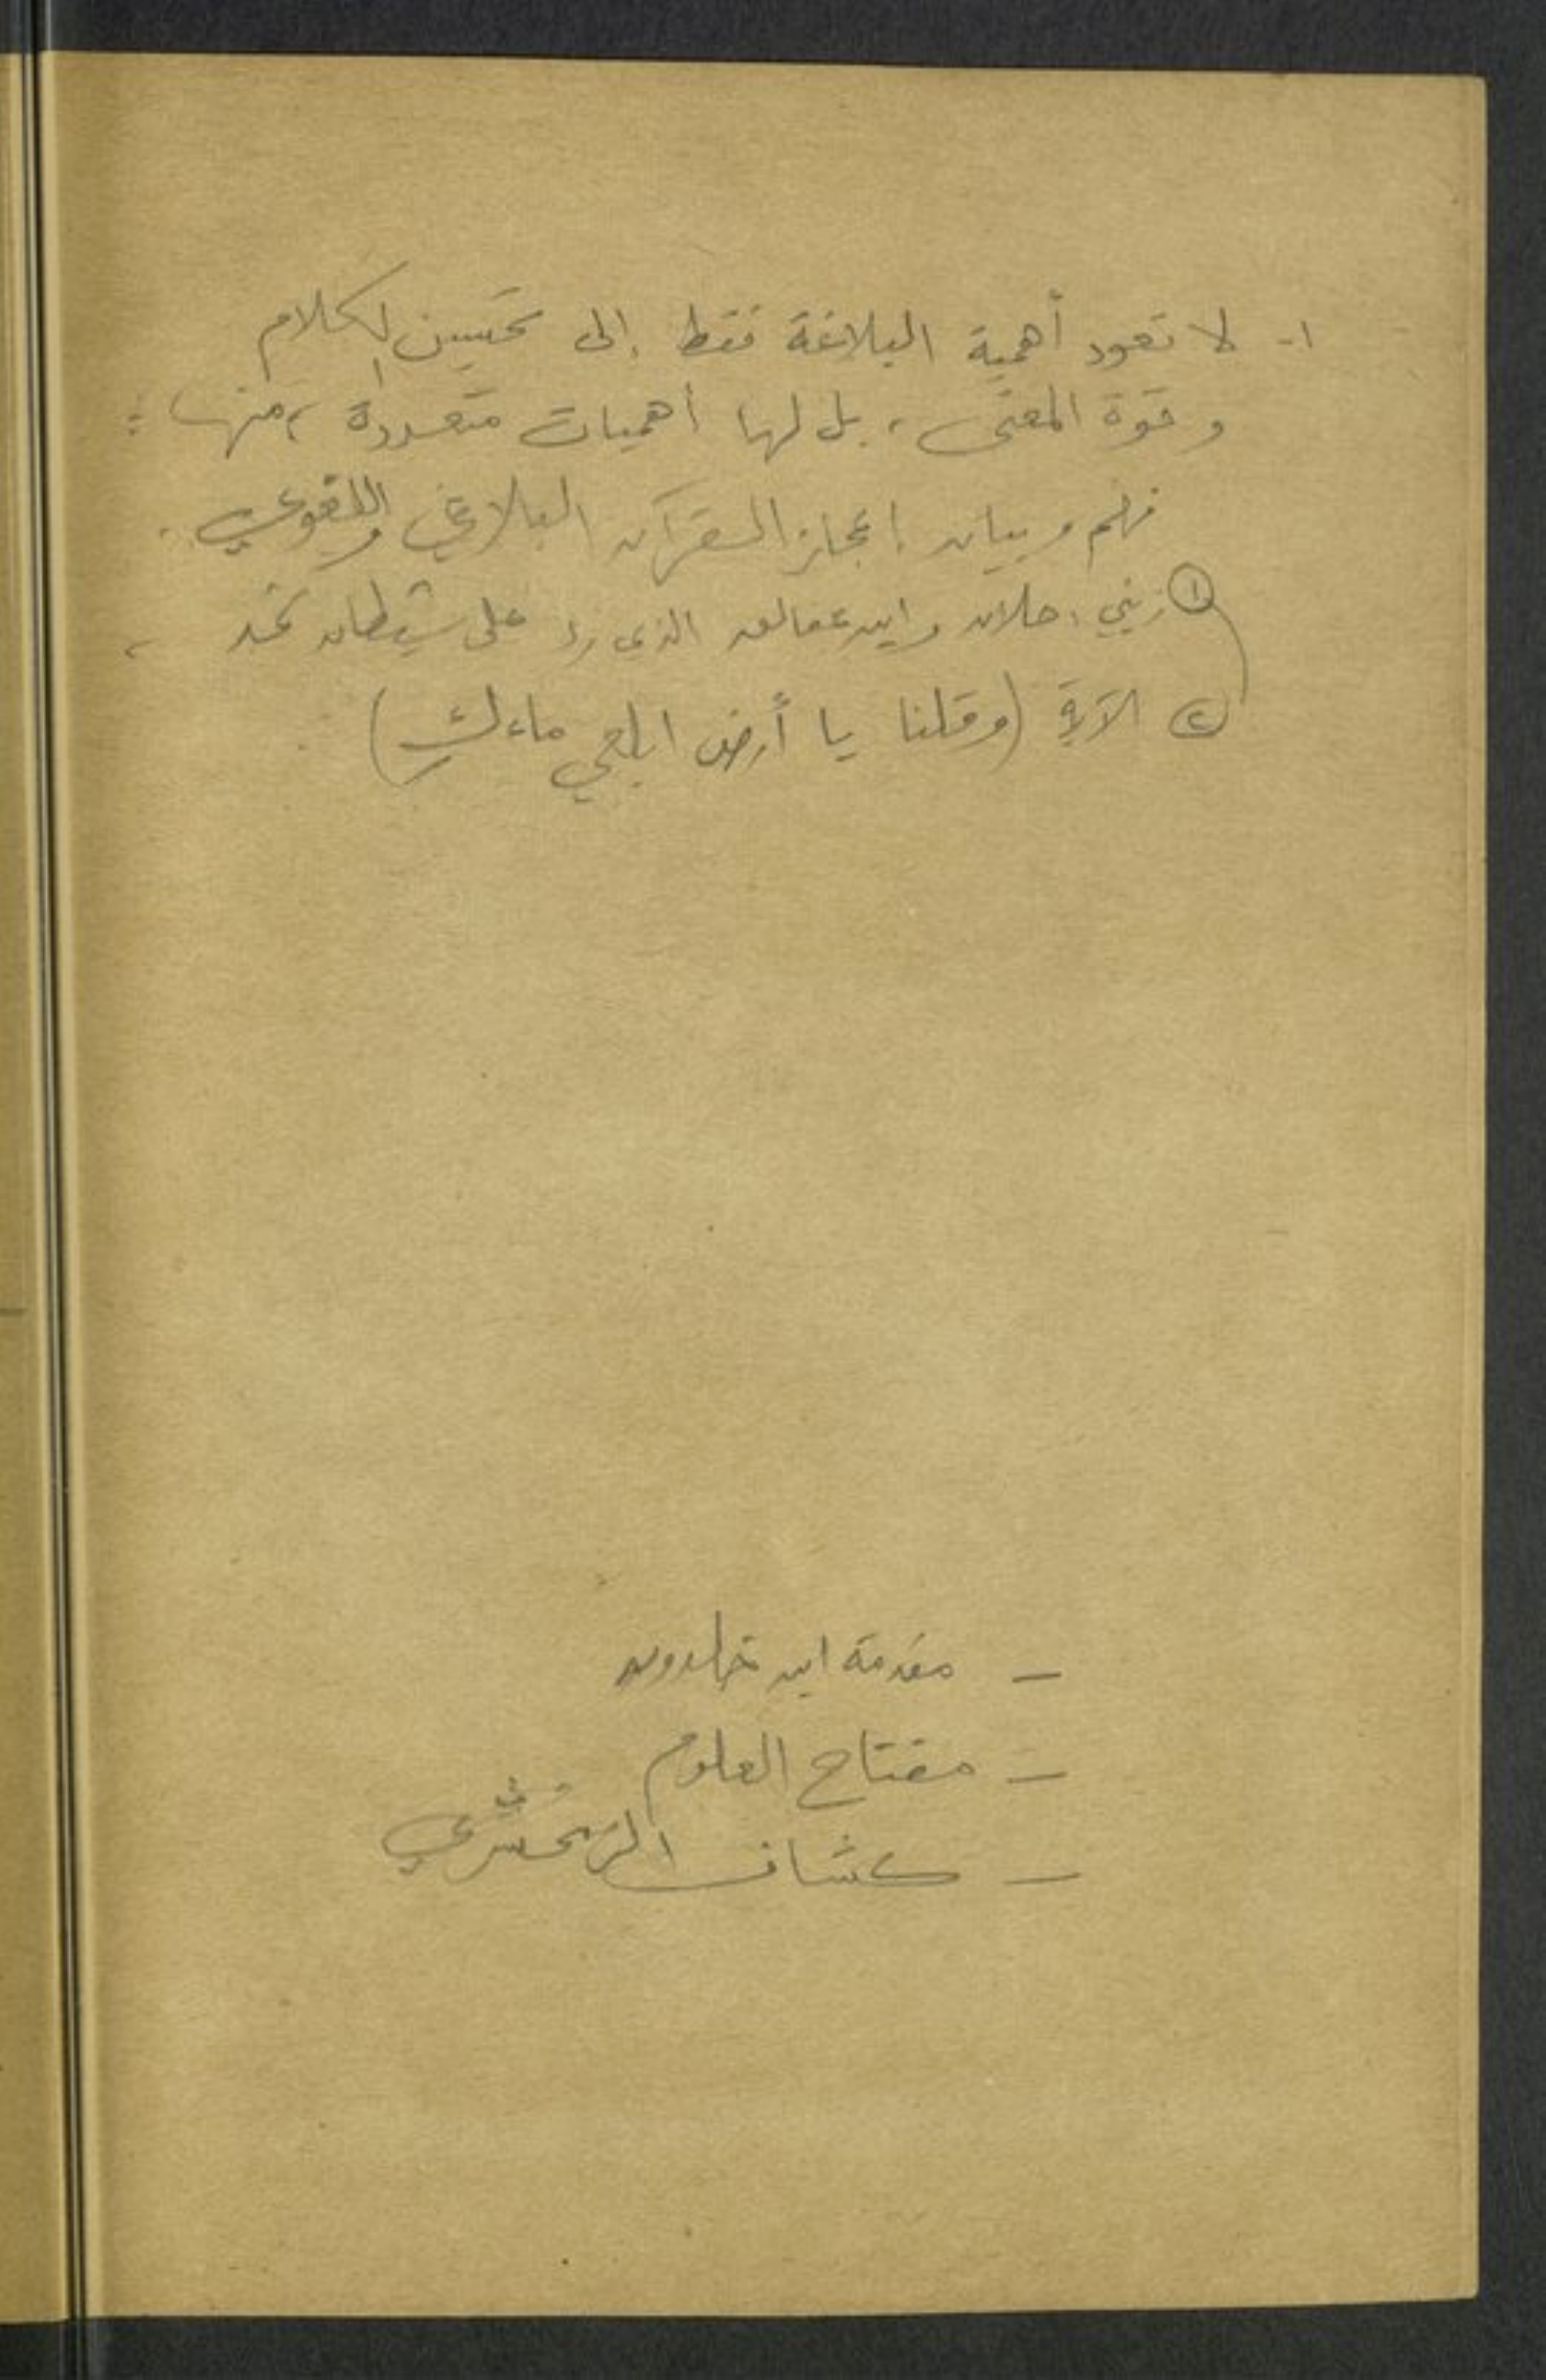 ١- لا تعود أهمية البلاغة فقط إلى تحسين الكلام
وقوة المعنى، بل لها أهميات متعددة، منها:
فهم وبيان إعجاز القرآن البلاغي واللغوي.
① زيني دحلان وابن الذي رد على شيطان نجد،
② الآية (وقلنا يا أرض ابلعي ماءكِ)
- مقدمة ابن خلدون
- مفتاح العلوم
- كشاف الزمخشري